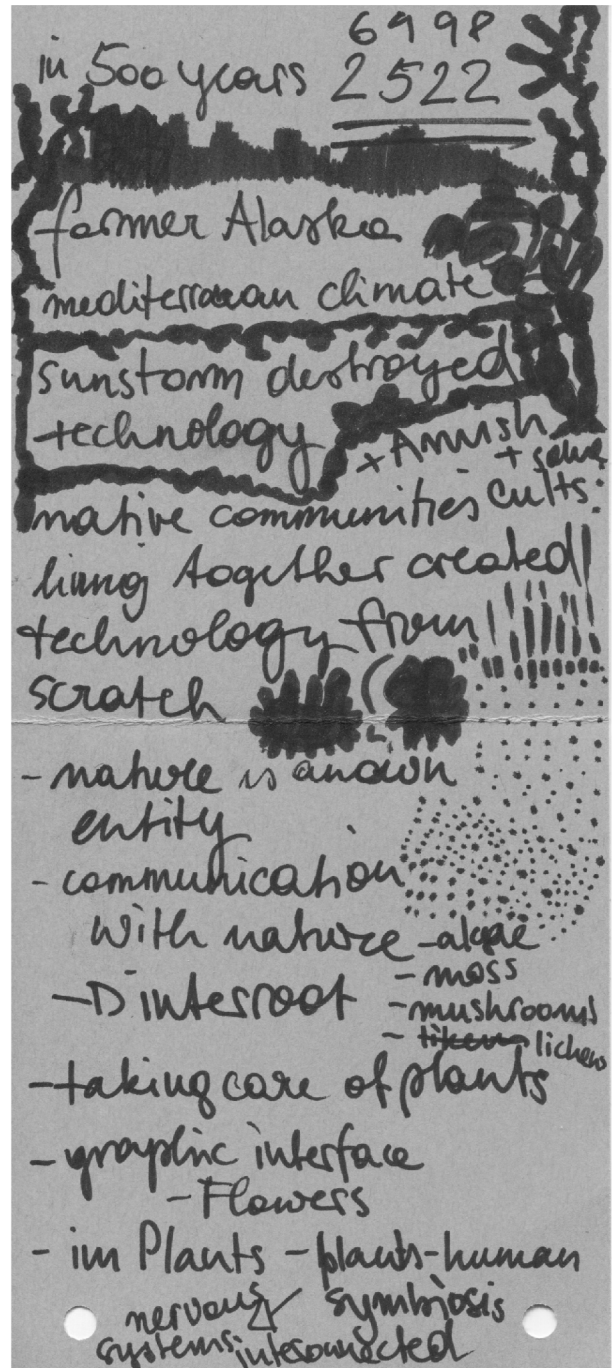 6998
in 500 years 2522
former Alaska
mediterranean climate
sunstorm destroyed
technology + Amish + some
native communities cults
living together created
technology from
scratch
- nature is an own
entity
- communication
with nature - algae
- moss
-D interroot - mushrooms
- lichens
- taking care of plants
- graphic interface
- Flowers
- im Plants - plants-human
nervous symbiosis
systems interconnected